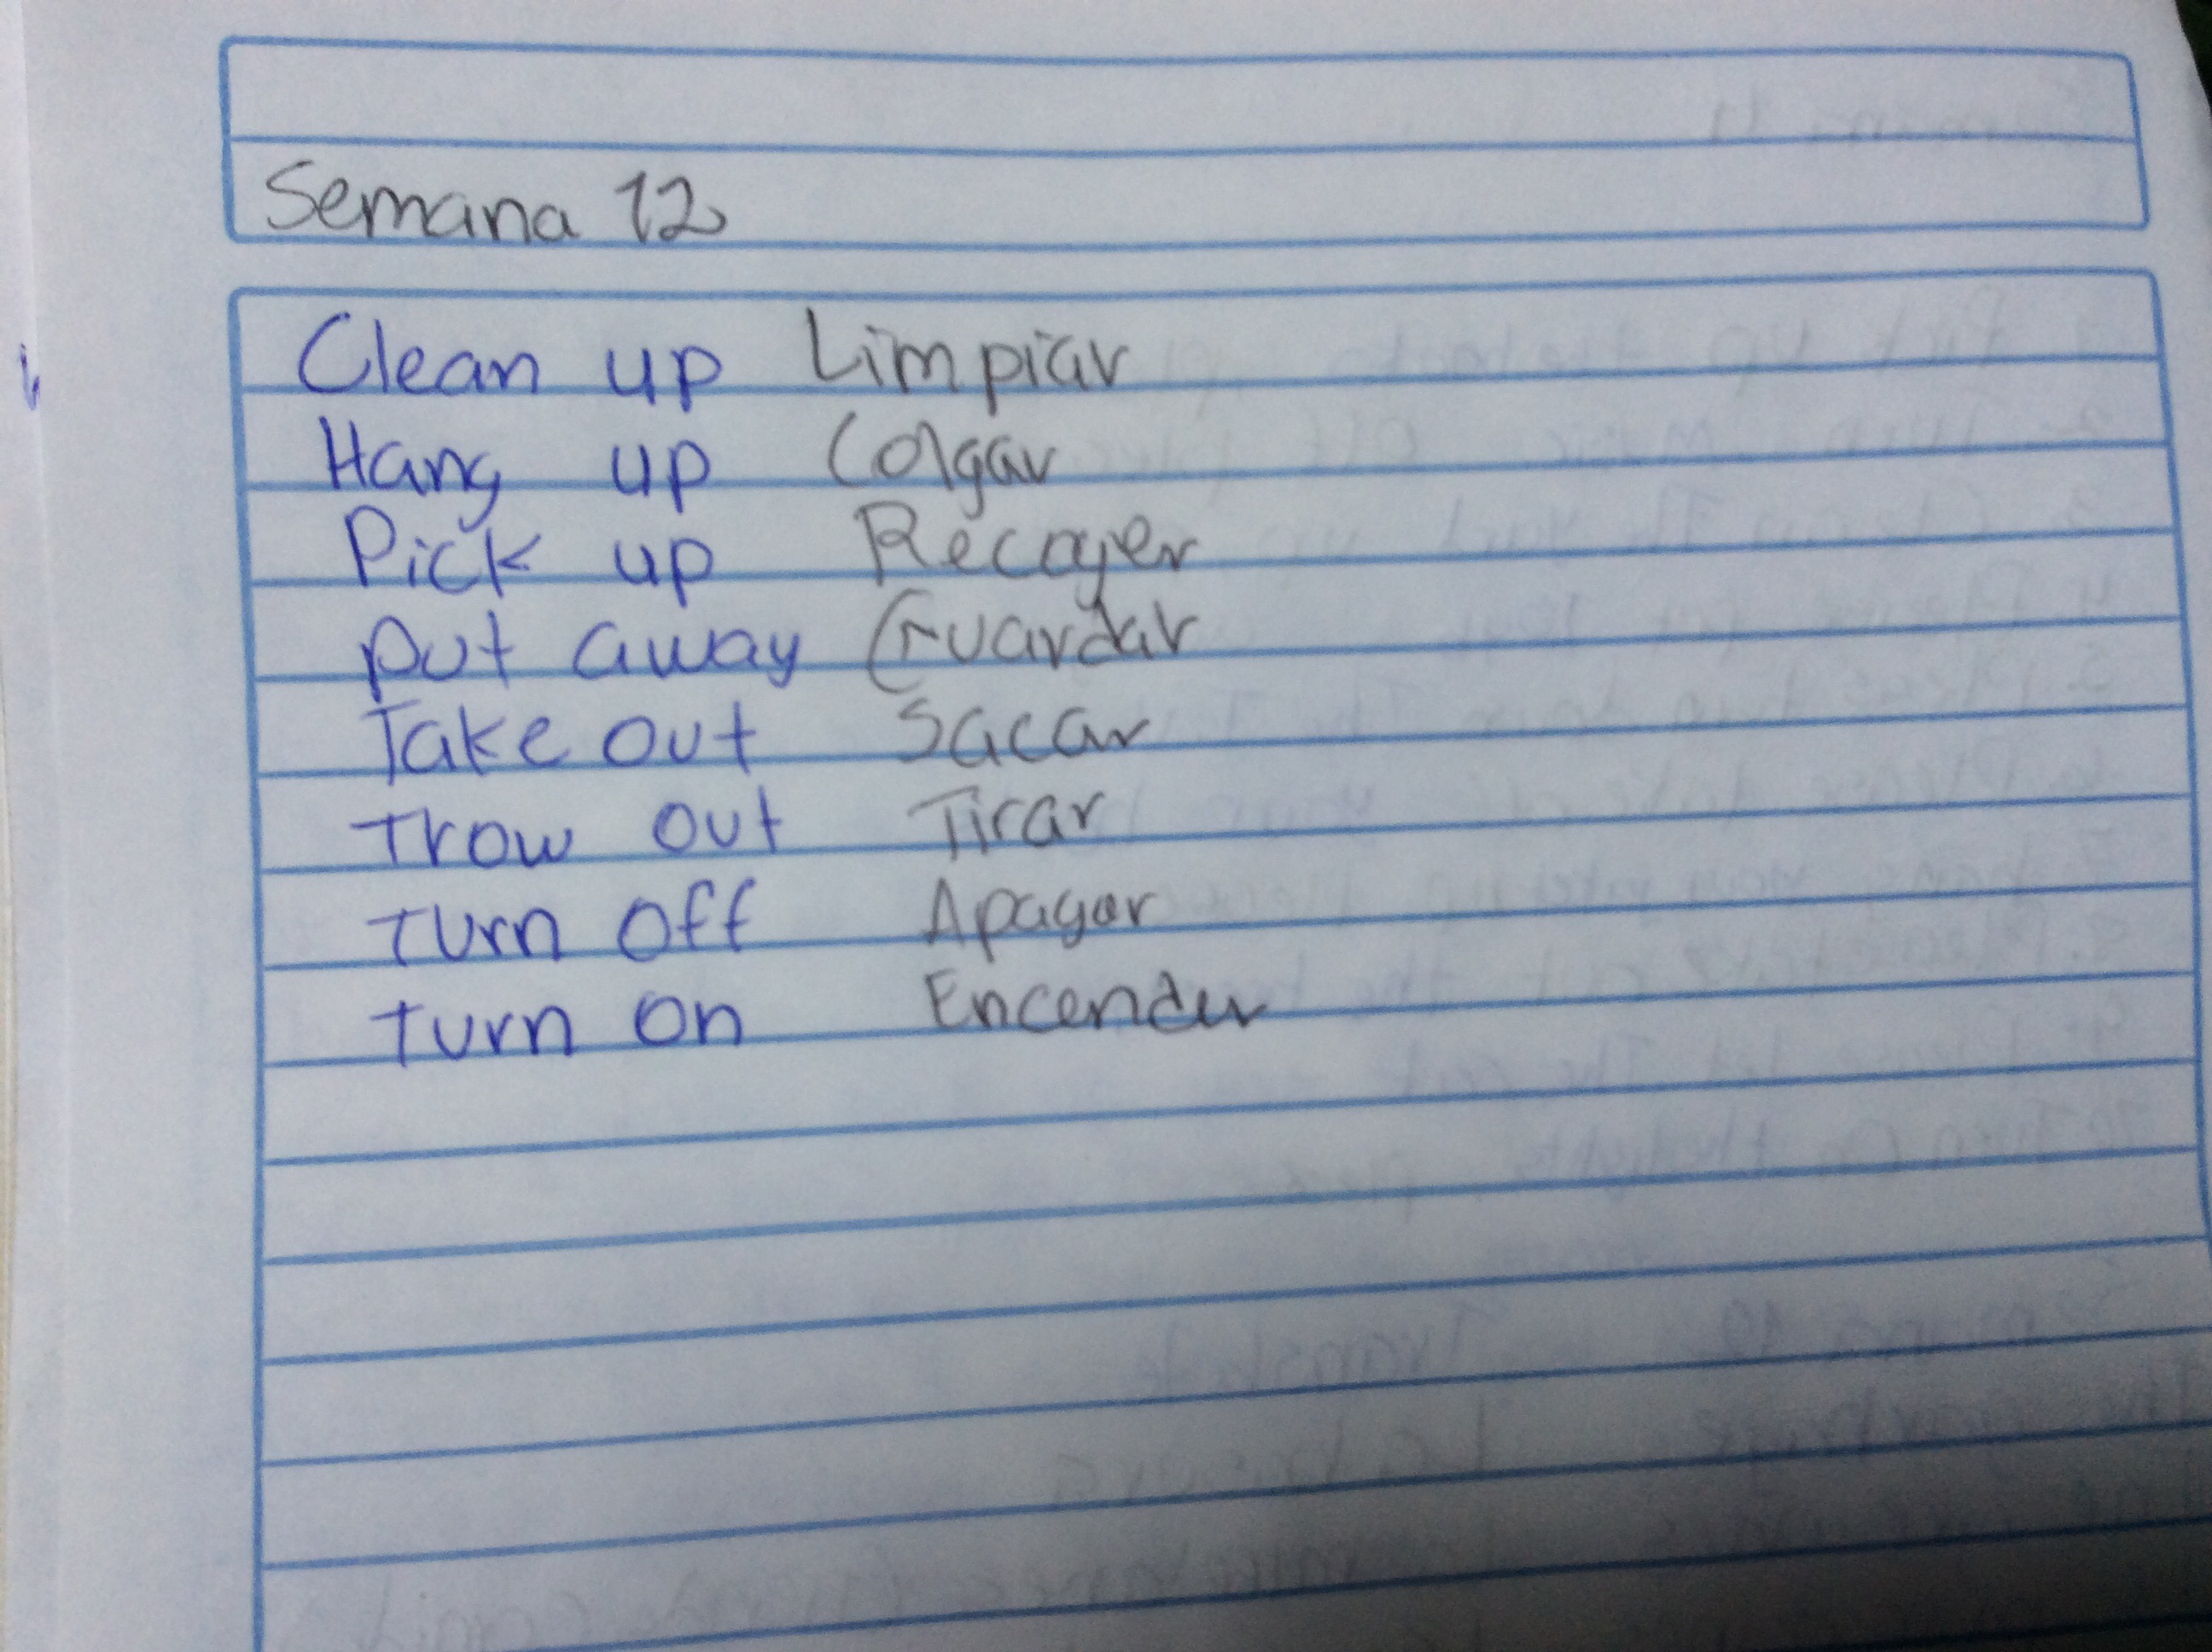 Semana 12
Clean up Limpiar
Hang up Colgar
Pick up Recoger
put away Guardar
Take out Sacar
Trow out Tirar
Turn Off Apagar
Turn On Encender